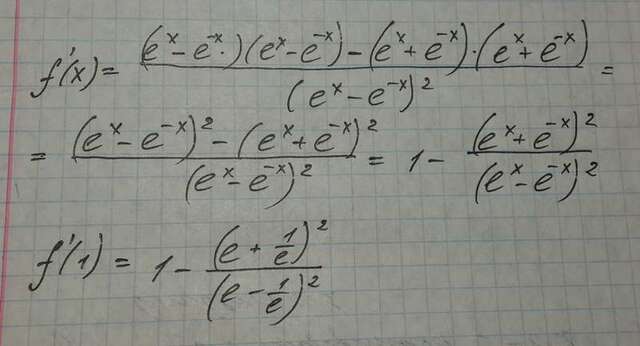 f'(x) = ((e^x - e^-x)(e^x - e^-x) - (e^x + e^-x)·(e^x + e^-x)) / (e^x - e^-x)^2 =
= ((e^x - e^-x)^2 - (e^x + e^-x)^2) / (e^x - e^-x)^2 = 1 - (e^x + e^-x)^2 / (e^x - e^-x)^2
f'(1) = 1 - (e + 1/e)^2 / (e - 1/e)^2